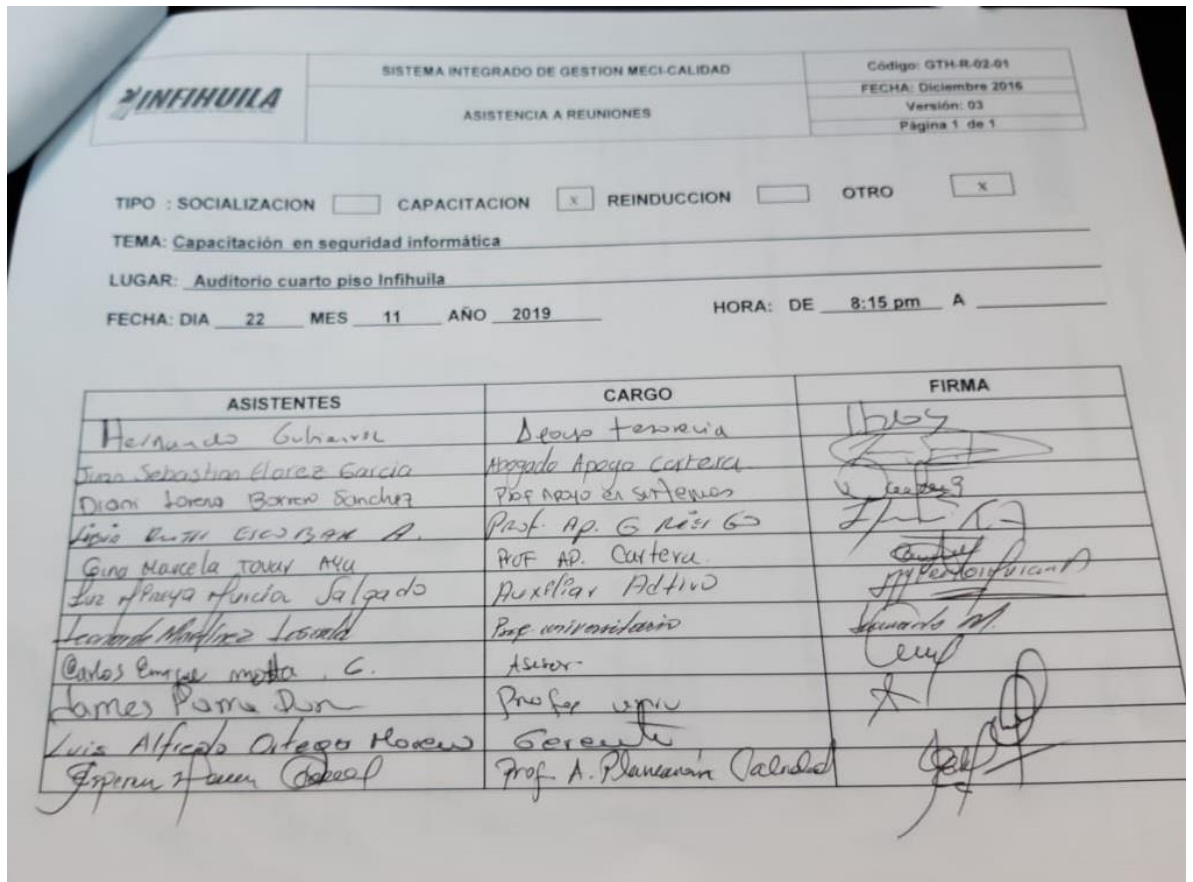 INFIHUILA
SISTEMA INTEGRADO DE GESTION MECI-CALIDAD
ASISTENCIA A REUNIONES
Código: GTH-R-02-01
FECHA: Diciembre 2016
Versión: 03
Página 1 de 1
TIPO : SOCIALIZACION CAPACITACION x REINDUCCION OTRO x
TEMA: Capacitación en seguridad informática
LUGAR: Auditorio cuarto piso Infihuila
FECHA: DIA 22 MES 11 AÑO 2019 HORA: DE 8:15 pm A
ASISTENTES CARGO FIRMA
Hernando Apoyo tesoreria
Juan Sebastian Florez Garcia Abogado Apoyo Cartera
Diani Lorena Borrero Sanchez Prof Apoyo en Sistemas
Ligia Ruth Escobar A. Prof. Ap. G Riesgo
Gina Marcela Tovar Aya Prof AP. Cartera
Luz Murcia Salgado Auxiliar Adtivo
Leonardo Martinez Losada Prof universitario
Carlos Enrique motta C. Asesor
James Profes univ
Luis Alfredo Ortega Moreno Gerente
Prof A. Planeación Calidad